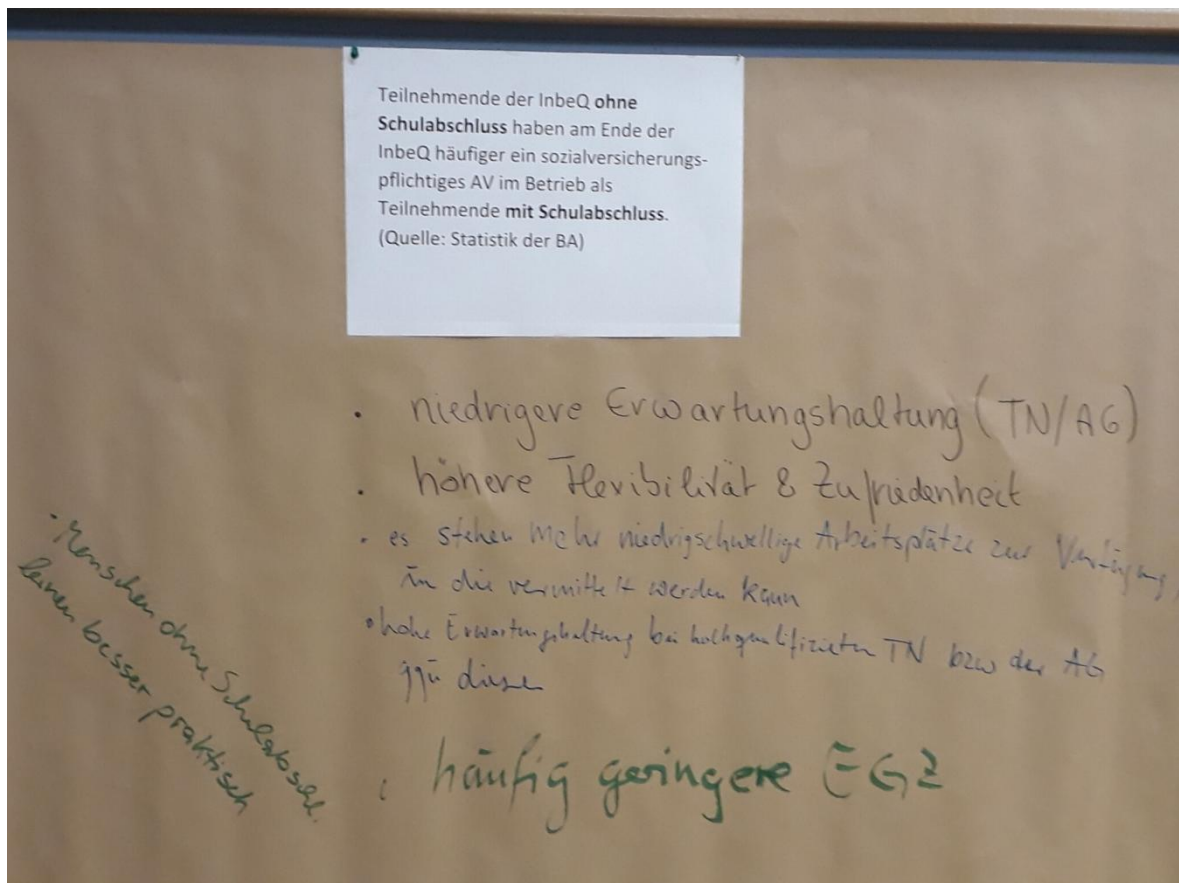 Teilnehmende der InbeQ ohne
Schulabschluss haben am Ende der
InbeQ häufiger ein sozialversicherungs-
pflichtiges AV im Betrieb als
Teilnehmende mit Schulabschluss.
(Quelle: Statistik der BA)
• niedrigere Erwartungshaltung (TN/AG)
• höhere Flexibilität & Zufriedenheit
• es stehen mehr niedrigschwellige Arbeitsplätze zur Verfügung,
in die vermittelt werden kann
• hohe Erwartungshaltung bei hochqualifizierten TN bzw der AG
ggü diesen
• häufig geringere EGZ
• Menschen ohne Schulabschl.
lernen besser praktisch